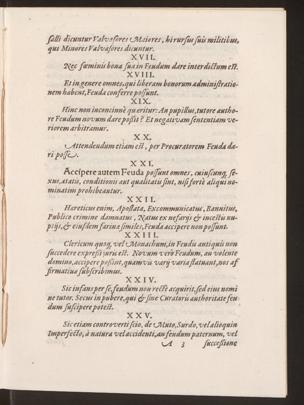 facti dicuntur Valvasores Maiores, hi rursus suis militibus,
qui Minores Valvasores dicuntur.
XVII.
Nec fœminis bona sua in Feudum dare interdictum est.
XVIII.
Et in genere omnes, qui liberam bonorum administratio-
nem habent, Feuda conferre possunt.
XIX.
Hinc non inconcinnè quæritur: An pupillus, tutore autho-
re Feudum novum dare possit? Et negativam sententiam ve-
riorem arbitramur.
XX.
Attendendum etiam est, per Procuratorem Feuda da-
ri posse.
XXI.
Accipere autem Feuda possunt omnes, cuiuscunq; se-
xus, ætatis, conditionis aut qualitatis sint, nisi fortè aliqui no-
minatim prohibeantur.
XXII.
Hæreticus enim, Apostata, Excommunicatus, Bannitus,
Publico crimine damnatus, Natus ex nefarijs & incestis nu-
ptijs, & eiusdem farinæ similes, Feuda accipere non possunt.
XXIII.
Clericum quoq; vel Monachum, in Feudis antiquis non
succedere expressi iuris est. Novum verò Feudum, an volente
domino, accipere possint, quamvis varij varia statuant, nos af-
firmativæ subscribimus.
XXIV.
Sic infans per se, feudum non rectè acquirit, sed eius nomi-
ne tutor. Secus in pubere, qui & sine Curatoris authoritate feu-
dum suscipere potest.
XXV.
Sic etiam controverti scio, de Muto, Surdo, vel alioquin
Imperfecto, à natura vel accidenti, an feudum paternum, vel
A 3 successione